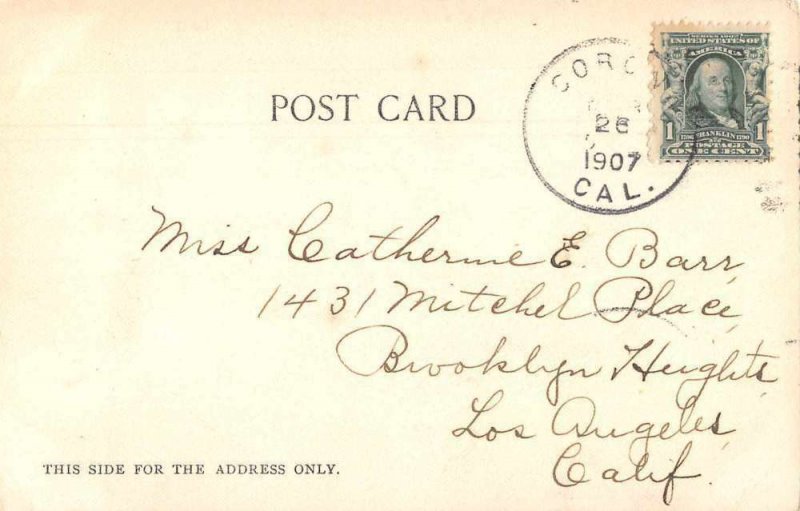 POST CARD
26
1907
CAL.
SERIES 1902
UNITED STATES OF
AMERICA
1 FRANKLIN 1790 1
POSTAGE
ONE CENT
Miss Catherine E. Barr,
1431 Mitchel Place,
Brooklyn Heights,
Los Angeles,
Calif.
THIS SIDE FOR THE ADDRESS ONLY.